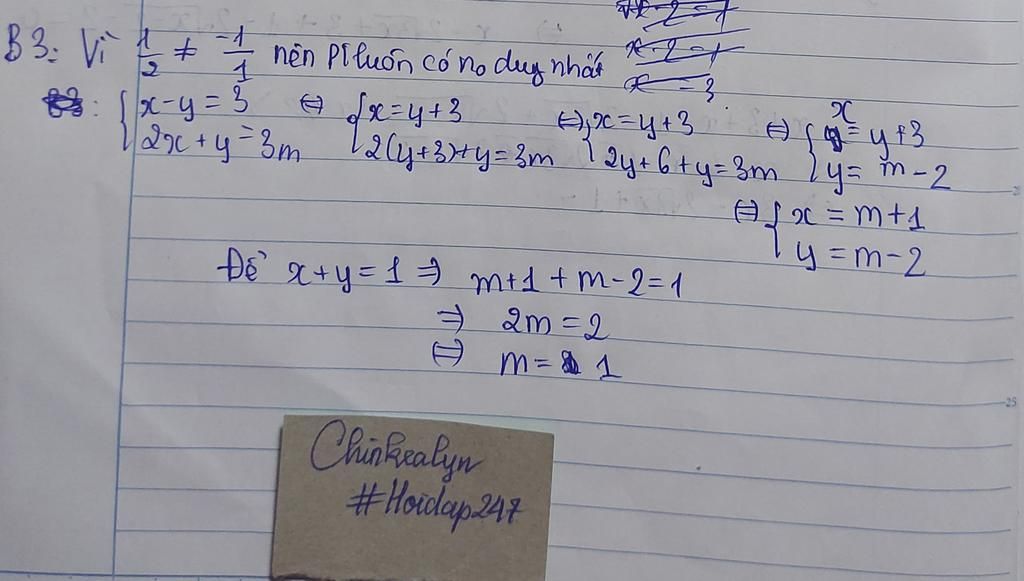 x - 2 = 1
x = 3
B3: Vì 1/2 ≠ -1/1 nên Pt luôn có no duy nhất
{ x - y = 3 ⇔ { x = y + 3 ⇔ { x = y + 3 ⇔ { x = y + 3
2x + y = 3m 2(y+3) + y = 3m 2y + 6 + y = 3m y = m - 2
⇔ { x = m + 1
y = m - 2
Để x + y = 1 ⇒ m + 1 + m - 2 = 1
⇒ 2m = 2
⇔ m = 1
Chinkealyn
#Hoidap247
25